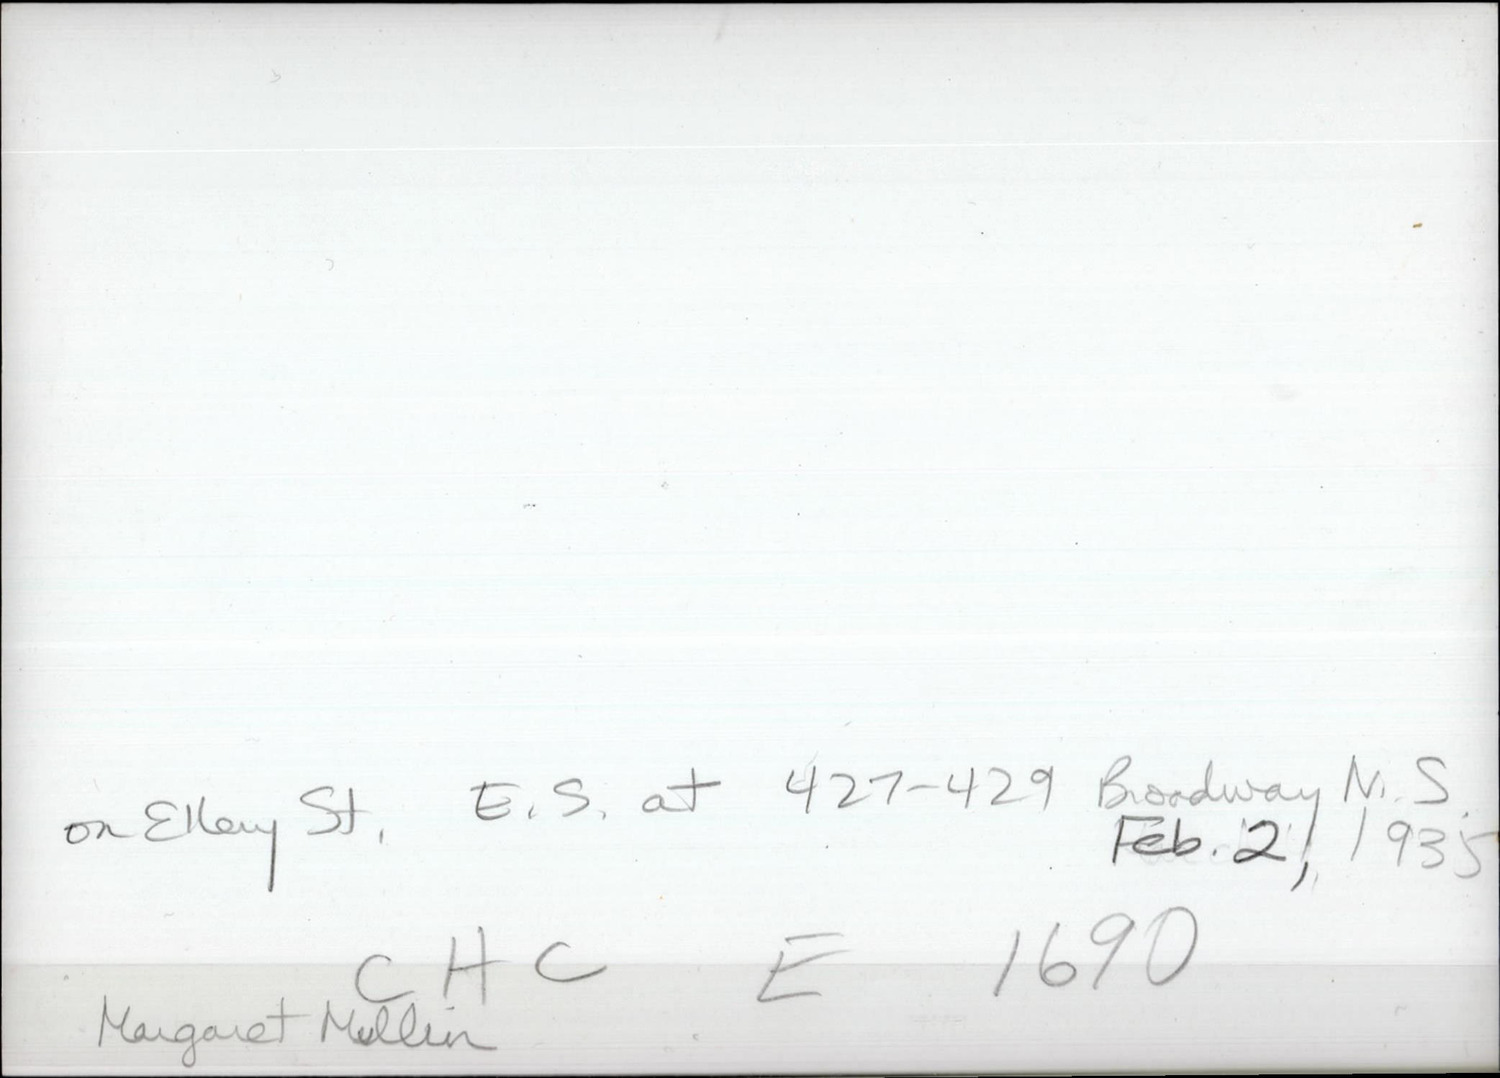 on Ellery St. E.S. at 427-429 Broadway N.S.
Feb. 2, 1935
CHC E 1690
Margaret Mullin